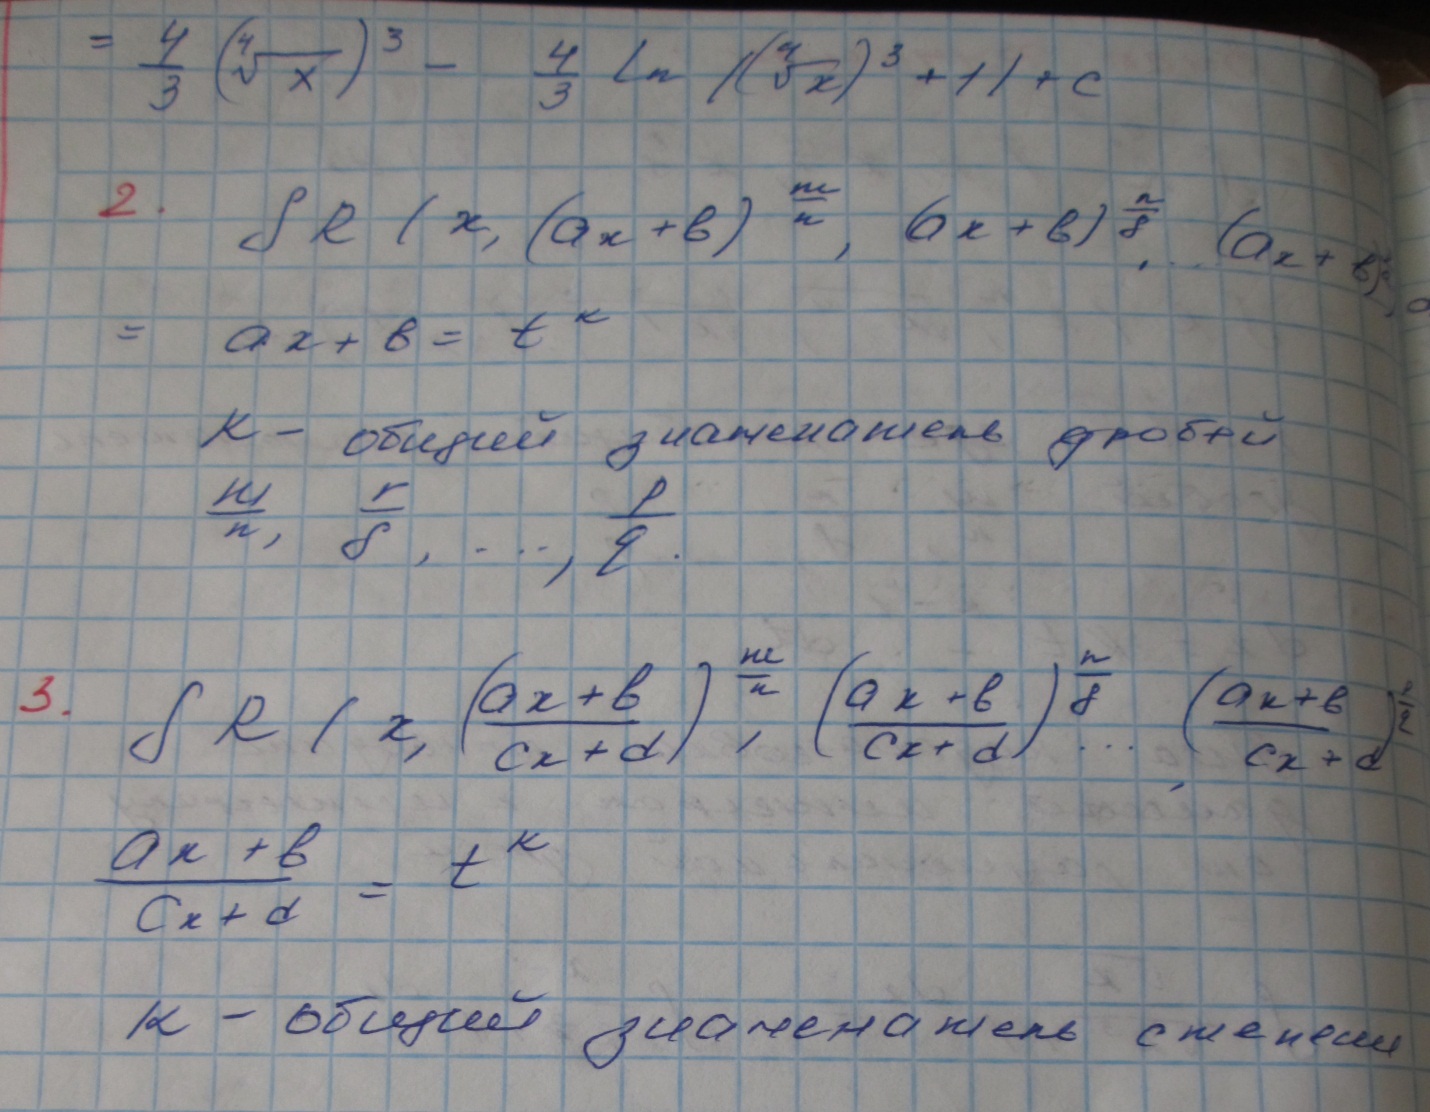 = 4/3 (∜x)³ - 4/3 ln |(∜x)³ + 1| + c
2. ∫ R (x, (ax + b)^(m/n), (ax + b)^(r/s), ... (ax + b)
= ax + b = t^k
k - общий знаменатель дробей
m/n, r/s, ..., p/q.
3. ∫ R (x, ((ax + b)/(cx + d))^(m/n), ((ax + b)/(cx + d))^(r/s) ..., ((ax + b)/(cx + d))
(ax + b)/(cx + d) = t^k
k - общий знаменатель степени